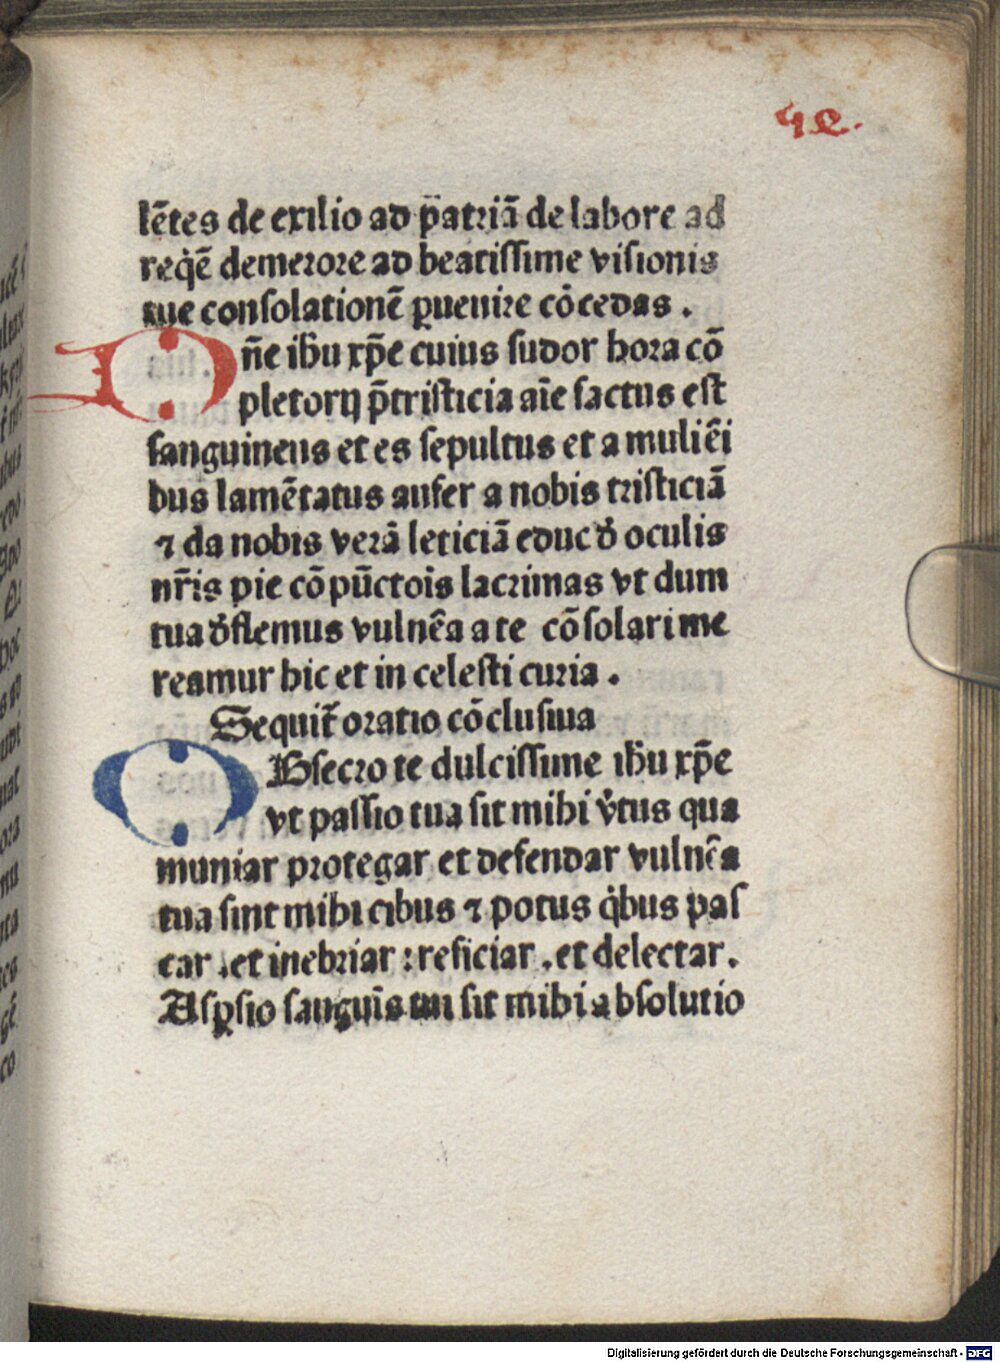 42.
lẽtes de exilio ad p̃atriã de labore ad
req̃ẽ demerore ad beatissime visionis
tue consolationẽ ꝑuenire cõcedas .
Dñe ihu xp̃e cuius sudor hora cõ
pletorij p̃tristicia aĩe factus est
sanguineus et es sepultus et a muliẽi
bus lamẽtatus aufer a nobis tristiciã
⁊ da nobis verã leticiã educ d̃ oculis
nr̃is pie cõpũctoĩs lacrimas vt dum
tua d̃flemus vulnẽa a te cõsolari me
reamur hic et in celesti curia .
Sequit̃ oratio cõclusiua
OBsecro te dulcissime ihu xp̃e
vt passio tua sit mihi v̾tus qua
muniar protegar et defendar vulnẽa
tua sint mihi cibus ⁊ potus q̃bus pas
car .et inebriar : reficiar .et delectar.
Asꝑsio sanguĩs tui sit mihi absolutio
Digitalisierung gefördert durch die Deutsche Forschungsgemeinschaft - DFG